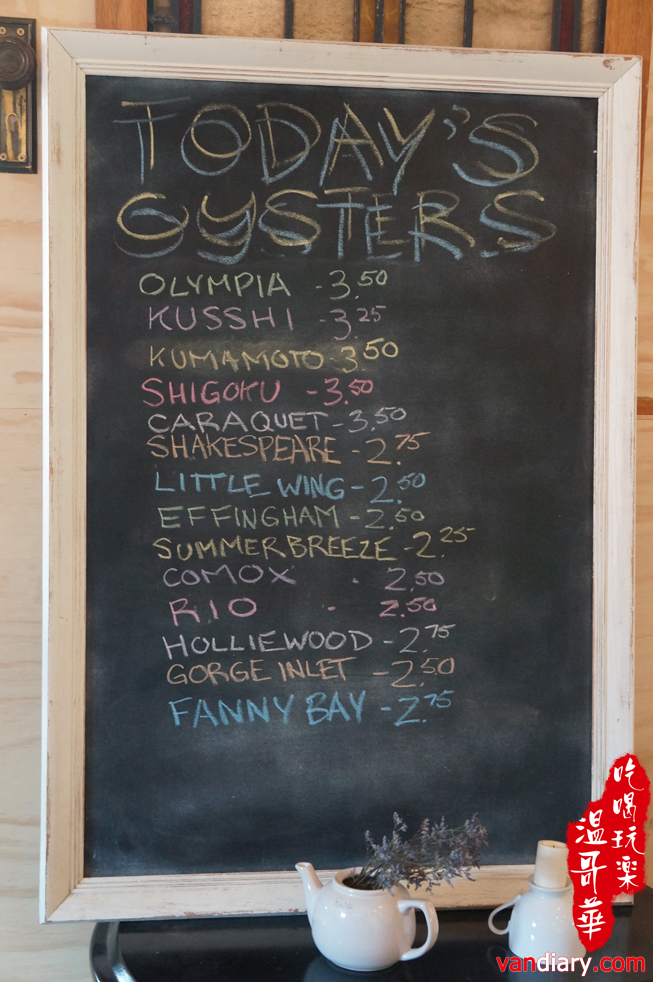 TODAY'S
OYSTERS
OLYMPIA - 3.50
KUSSHI - 3.25
KUMAMOTO - 3.50
SHIGOKU - 3.50
CARAQUET - 3.50
SHAKESPEARE - 2.75
LITTLE WING - 2.50
EFFINGHAM - 2.50
SUMMERBREEZE - 2.25
COMOX - 2.50
RIO - 2.50
HOLLIEWOOD - 2.75
GORGE INLET - 2.50
FANNY BAY - 2.75
吃喝玩樂
溫哥華
vandiary.com